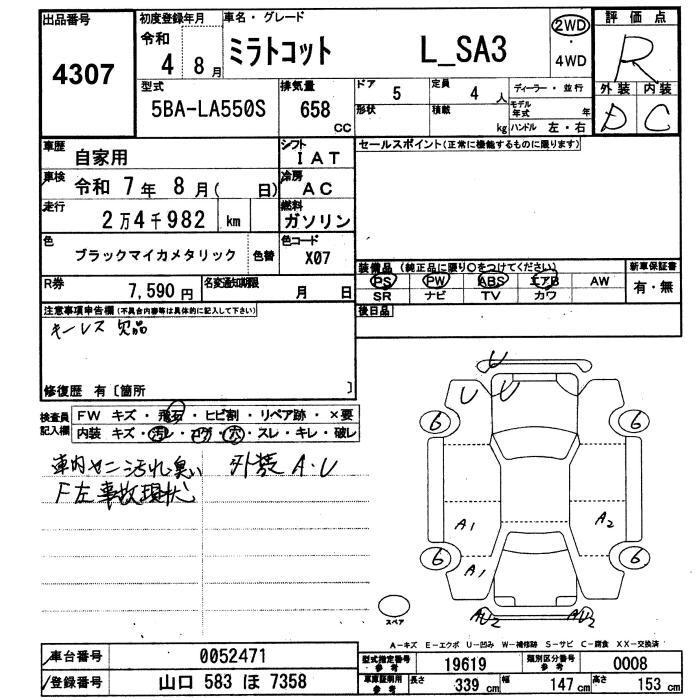 出品番号
4307
初度登録年月
令和
4 8月
車名・グレード
ミラトコット L_SA3
2WD
・
4WD
評価点
R
外装 内装
D C
型式
5BA-LA550S
排気量
658
CC
ドア
5
形状
定員
4 人
積載
kg
ディーラー・並行
モデル年式 年
ハンドル 左・右
車歴
自家用
シフト
IAT
セールスポイント(正常に機能するものに限ります)
車検
令和 7年 8月( 日)
冷房
AC
走行
2万4千982 km
燃料
ガソリン
色
ブラックマイカメタリック
色替
色コード
X07
R券
7,590円
名変通知期限
月 日
装備品 (純正品に限り○をつけてください)
PS PW ABS エアB AW
SR ナビ TV カワ
新車保証書
有・無
注意事項申告欄(不具合内容等は具体的に記入して下さい)
キーレス欠品
後日品
修復歴 有〔箇所 〕
検査員記入欄
FW キズ・飛石・ヒビ割・リペア跡・×要
内装 キズ・汚レ・コゲ・穴・スレ・キレ・破レ
車内ヤニ汚れ臭い 外装 A・U
F左事故現状
U
U U
6 6
A1 A2
6 6
A1
AU2 AU2
スペア
A-キズ E-エクボ U-凹み W-補修跡 S-サビ C-腐食 XX-交換済
車台番号
0052471
登録番号
山口 583 ほ 7358
型式指定番号
参考
19619
類別区分番号
参考
0008
車庫証明用
参考
長さ
339 cm
幅
147 cm
高さ
153 cm